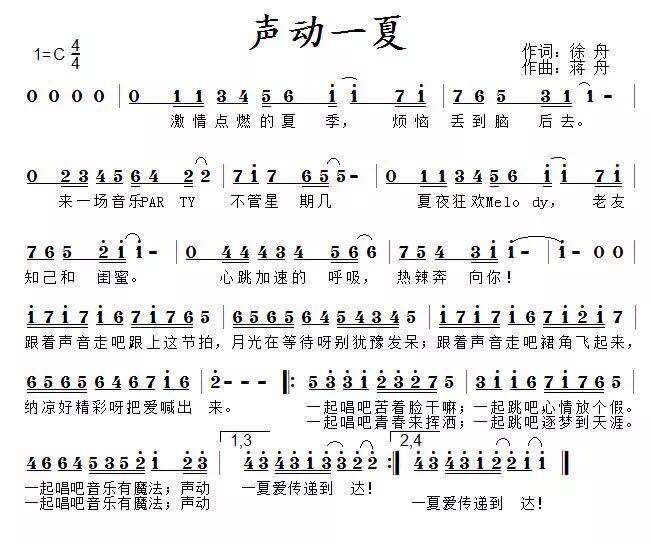 声动一夏
1=C 4/4
作词：徐 舟
作曲：蒋 舟
0 0 0 0 | 0 1 1 3 4 5 6 i i 7 i | 7 6 5 3 1 i - |
激情点燃的夏 季， 烦恼 丢到脑 后去。
0 2 3 4 5 6 4 2 2 | 7 i 7 6 5 5 - | 0 1 1 3 4 5 6 i i 7 i |
来一场音乐PAR TY 不管星 期几 夏夜狂欢Melo dy， 老友
7 6 5 2 i i - | 0 4 4 4 3 4 5 6 6 | 7 5 4 3 i i - | i - 0 0 |
知己和 闺蜜。 心跳加速的 呼吸， 热辣奔 向你！
i 7 i 7 i 7 6 5 | 6 5 6 5 6 4 5 4 3 4 5 | i 7 i 7 i 7 6 5 i 2 i 7
跟着声音走吧跟上这节拍，月光在等待呀别犹豫发呆；跟着声音走吧裙角飞起来，
6 5 6 5 6 4 6 7 i 6 | 2 - - - |: 5 3 3 i 2 3 2 7 5 | 3 i i 6 7 6 5 6 7 i
纳凉好精彩呀把爱喊出 来。 一起唱吧苦着脸干嘛；一起跳吧心情放个假。
一起唱吧青春来挥洒；一起跳吧逐梦到天涯。
1,3 2,4
4 6 6 4 5 3 5 2 i 2 3 | 4 3 4 3 i 3 3 2 2 :| 4 3 4 3 i 2 2 i i ||
一起唱吧音乐有魔法；声动 一夏爱传递到 达！ 一夏爱传递到 达！
一起唱吧音乐有魔法；声动